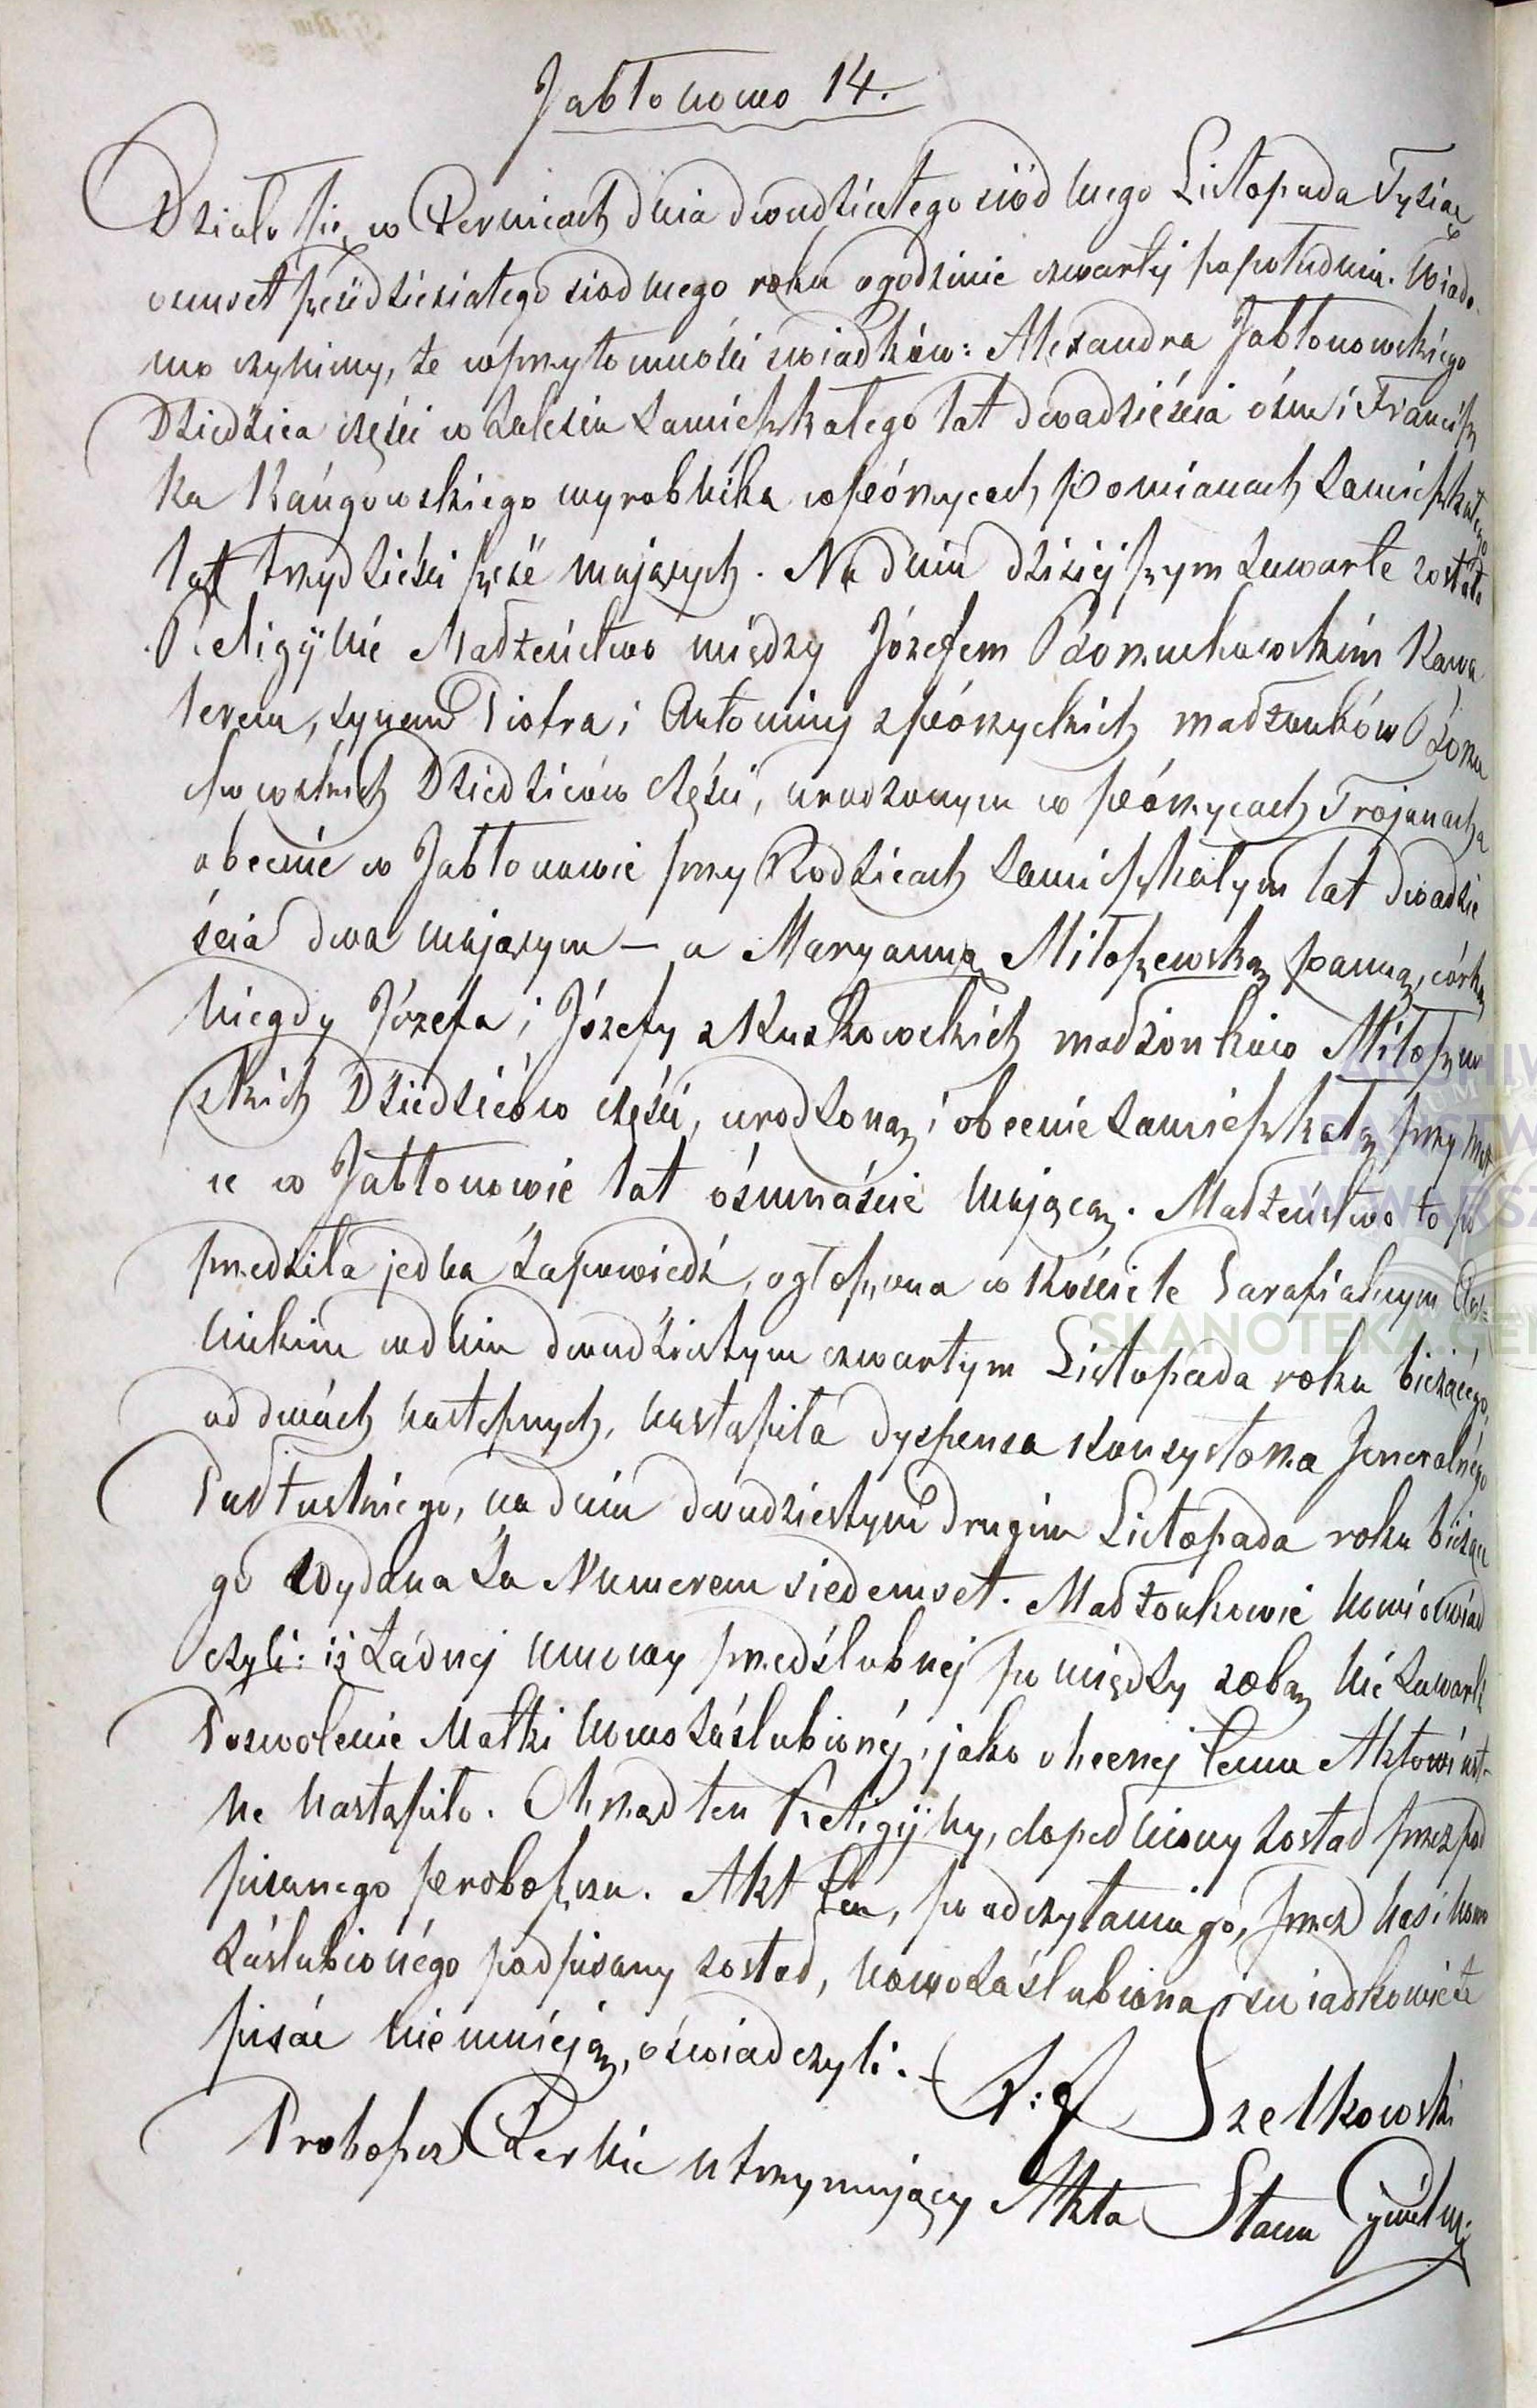 Jabłonowo 14.
Działo się w Żernicach dnia dwudziestego siódmego Listopada Tysiąc
osmset sześćdziesiątego siodmego roku o godzinie czwartéj popołudniu. Wiado
mo czynimy, że w przytomności swiadków: Alexandra Jabłonowskiego
Dziedzica części w Zalesiu zamieszkałego lat dwadzieścia óśm i Francisz
ka wyrobnika w Pomianach zamieszkałego
lat trzydzieści sześć mających. Na dniu dzisiéjszym zawarte zostało
Religijne Małżeństwo między Józefem Kawa
lerem, synem Piotra i Antoniny małżonków
Dziedziców części, urodzonym w Trojanach a
obecnie w Jabłonowie przy Rodzicach zamieszkałym lat dwadzie
ścia dwa mającym — a Maryanną Miłoszewską panną, córką
niegdy Józefa i Józefy z Kuskowskich małżonków Miłoszew
skich Dziedziców części, urodzoną i obecnie zamieszkałą przy mat
ce w Jabłonowie lat óśmnaście mającą. Małżeństwo to po
przedziła jedna zapowiedź, ogłoszona w Kościele Parafialnym
w dniu dwudziestym czwartym Listopada roku bieżącego,
od dwóch następnych, nastąpiła dyspensa Konsystorza Jeneralnego
Pułtuskiego, na dniu dwudziestym drugim Listopada roku bieżące
go wydana za Numerem siedemset. Małżonkowie nowi oświad
czyli: iż żadnéj umowy przedślubnéj pomiędzy sobą nie zawarli
Pozwolenie Matki nowozaślubionéj, jako obecnéj temu Aktowi ust-
ne nastąpiło. Obrząd ten Religijny, dopełniony został przez pod
pisanego proboszcza. Akt ten, po odczytaniu go, przez nas i nowo
zaślubionégo podpisany został, nowozaślubiona i swiadkowie że
pisać nie umieją, oświadczyli.
Szelkowski
Proboszcz utrzymujący Akta Stanu Cywiln:
ARCHIW
PAŃSTW
W WARSZ
SKANOTEKA.GEN